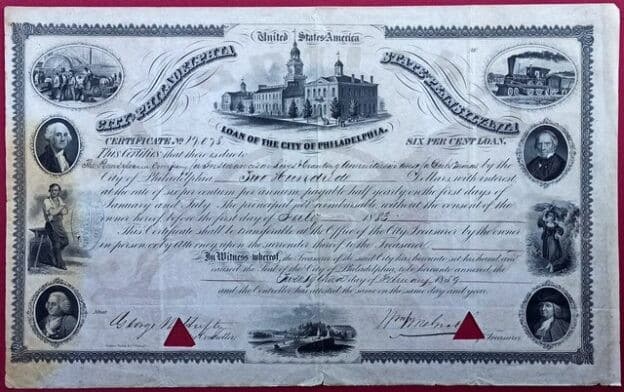 United States America
CITY OF PHILADELPHIA
OF
STATE OF PENNSYLVANIA
LOAN OF THE CITY OF PHILADELPHIA.
CERTIFICATE No
SIX PER CENT LOAN.
This Certifies that there is due to
The Pennsylvania Company for Insurances on Lives & Granting Annuities by the
City of Philadelphia Two Hundred Dollars with interest
at the rate of six per centum per annum, payable half yearly on the first days of
January and July. The principal not reimbursable without the consent of the
owner hereof before the first day of July 1883
This Certificate shall be transferable at the Office of the City Treasurer by the owner
in person or by Attorney upon the surrender hereof to the Treasurer
In Witness whereof, the Treasurer of the said City has hereunto set his hand, and
caused the Seal of the City of Philadelphia, to be hereunto annexed, the
day of February 1859
and the Controller has attested the same on the same day and year.
Attest
George
Controller
Wm
Treasurer